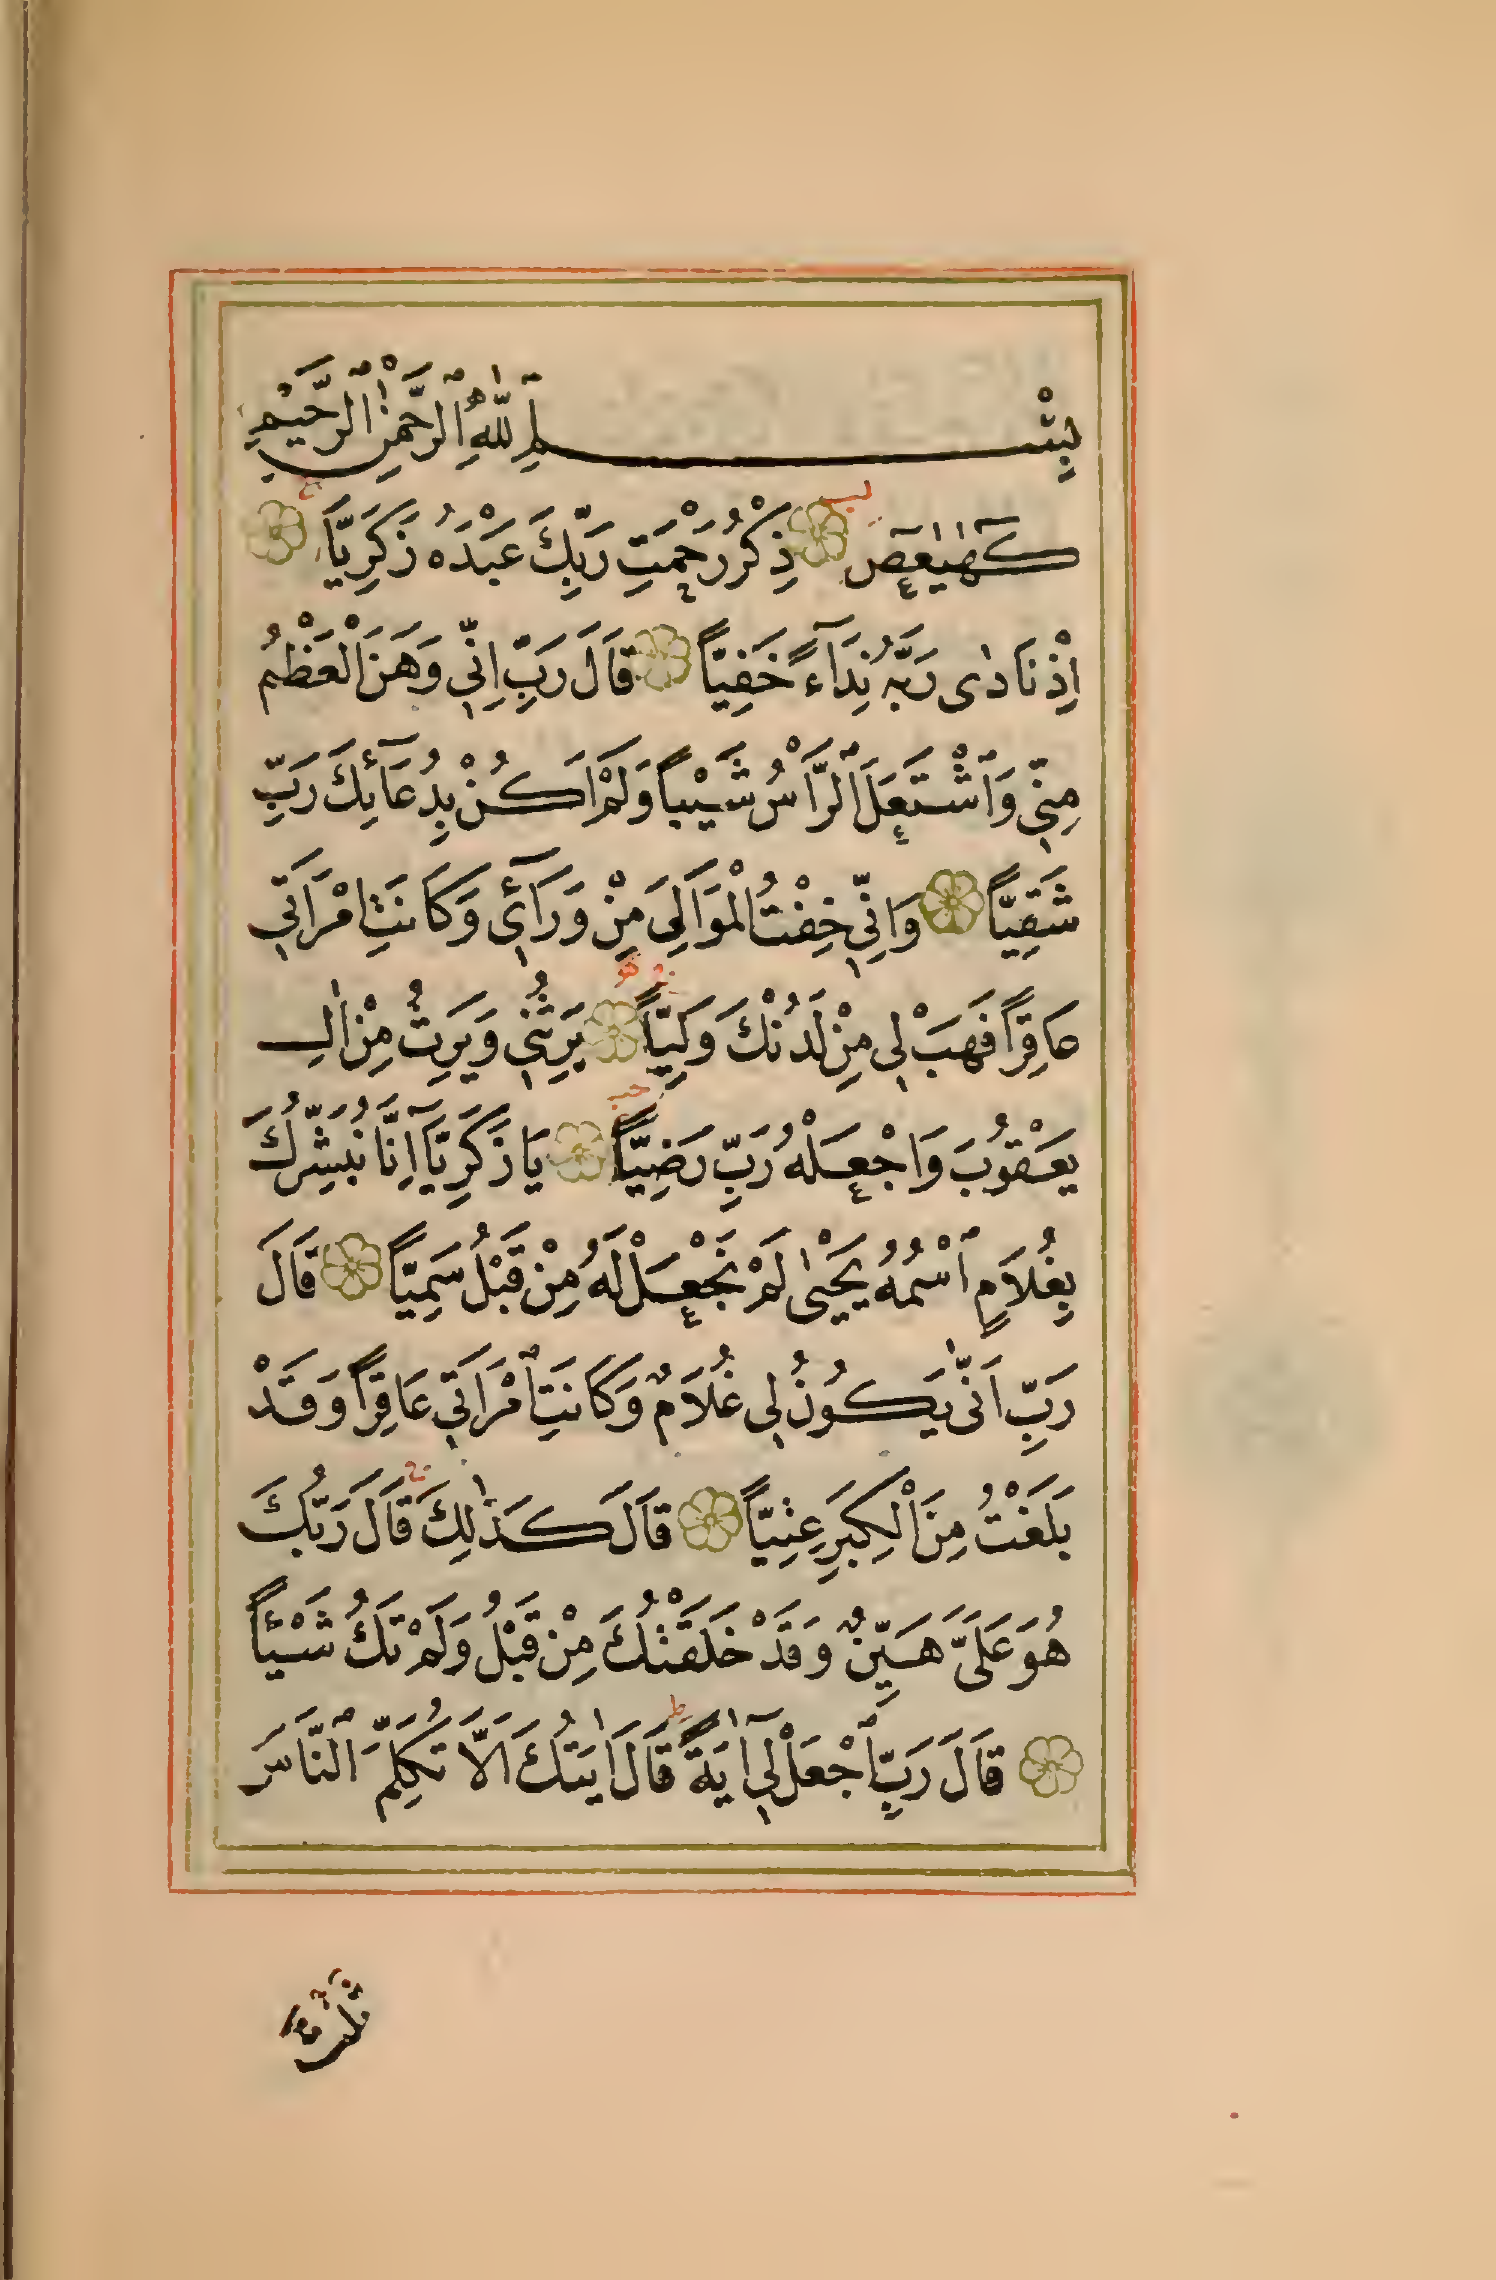 بِسْمِ ٱللّٰهِ ٱلرَّحْمٰنِ ٱلرَّحِيمِ
كٓهٰيٰعٓصٓ ذِكْرُ رَحْمَتِ رَبِّكَ عَبْدَهُ زَكَرِيَّا
اِذْ نَادٰى رَبَّهُ نِدَآءً خَفِيّاً قَالَ رَبِّ اِنِّي وَهَنَ الْعَظْمُ
مِنِّي وَٱشْتَعَلَ ٱلرَّاْسُ شَيْباً وَلَمْ اَكُنْ بِدُعَآئِكَ رَبِّ
شَقِيّاً وَاِنِّي خِفْتُ الْمَوَالِيَ مِنْ وَرَآئِي وَكَانَتِ امْرَاَتِي
عَاقِراً فَهَبْ لِي مِنْ لَدُنْكَ وَلِيّاً يَرِثُنِي وَيَرِثُ مِنْ اٰلِ
يَعْقُوبَ وَاجْعَلْهُ رَبِّ رَضِيّاً يَا زَكَرِيَّآ اِنَّا نُبَشِّرُكَ
بِغُلَامٍ ٱسْمُهُ يَحْيٰى لَمْ نَجْعَلْ لَهُ مِنْ قَبْلُ سَمِيّاً قَالَ
رَبِّ اَنّٰى يَكُونُ لِي غُلَامٌ وَكَانَتِ ٱمْرَاَتِي عَاقِراً وَقَدْ
بَلَغْتُ مِنَ الْكِبَرِ عِتِيّاً قَالَ كَذٰلِكَ قَالَ رَبُّكَ
هُوَ عَلَيَّ هَيِّنٌ وَقَدْ خَلَقْتُكَ مِنْ قَبْلُ وَلَمْ تَكُ شَيْئاً
قَالَ رَبِّ ٱجْعَلْ لِٓي اٰيَةً قَالَ اٰيَتُكَ اَلَّا تُكَلِّمَ ٱلنَّاسَ